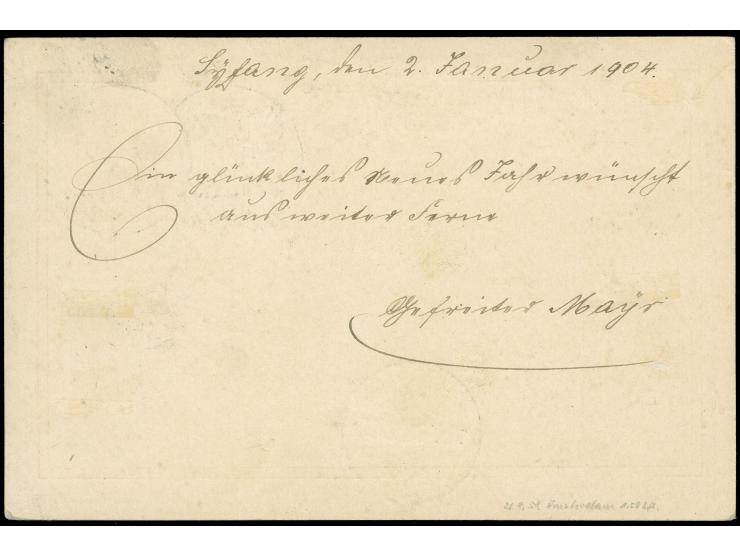 Syfang, den 2. Januar 1904.
Ein glückliches Neues Jahr wünscht
aus weiter Ferne
Gefreiter Mayr